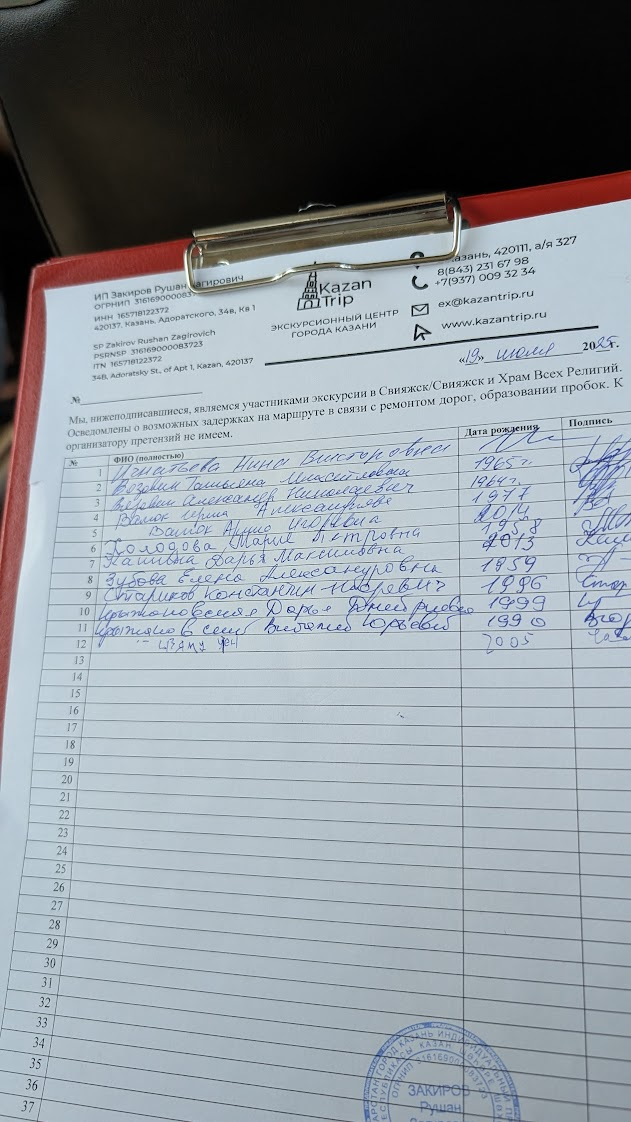 ИП Закиров Рушан Загирович
ОГРНИП 316169000083723
ИНН 165718122372
420137, Казань, Адоратского, 34в, Кв 1
SP Zakirov Rushan Zagirovich
PSRNSP 316169000083723
ITN 165718122372
34B, Adoratsky St., of Apt 1, Kazan, 420137
Kazan
Trip
ЭКСКУРСИОННЫЙ ЦЕНТР
ГОРОДА КАЗАНИ
Казань, 420111, а/я 327
8(843) 231 67 98
+7(937) 009 32 34
ex@kazantrip.ru
www.kazantrip.ru
«19» июля 2025г.
№
Мы, нижеподписавшиеся, являемся участниками экскурсии в Свияжск/Свияжск и Храм Всех Религий.
Осведомлены о возможных задержках на маршруте в связи с ремонтом дорог, образовании пробок. К
организатору претензий не имеем.
№ ФИО (полностью) Дата рождения Подпись
1 Игнатьева Нина Викторовна
2 Татьяна 1965г.
3 Александр Николаевич 1964г.
4 Валюк Ирина Александровна 1977
5 Валюк Игоревна 2014
6 Холодова Мария Петровна 1958
7 Дарья Максимовна 2013
8 Зубова Елена Александровна 1959
9 Стариков Константин Игоревич 1996
10 Крыжановская Дарья Дмитриевна 1999
11 Виталий Юрьевич 1990
12 2005
13
14
15
16
17
18
19
20
21
22
23
24
25
26
27
28
29
30
31
32
33
34
35
36
37
ЗАКИРОВ
Рушан